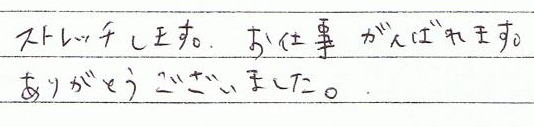 ストレッチします。お仕事がんばれます。
ありがとうございました。